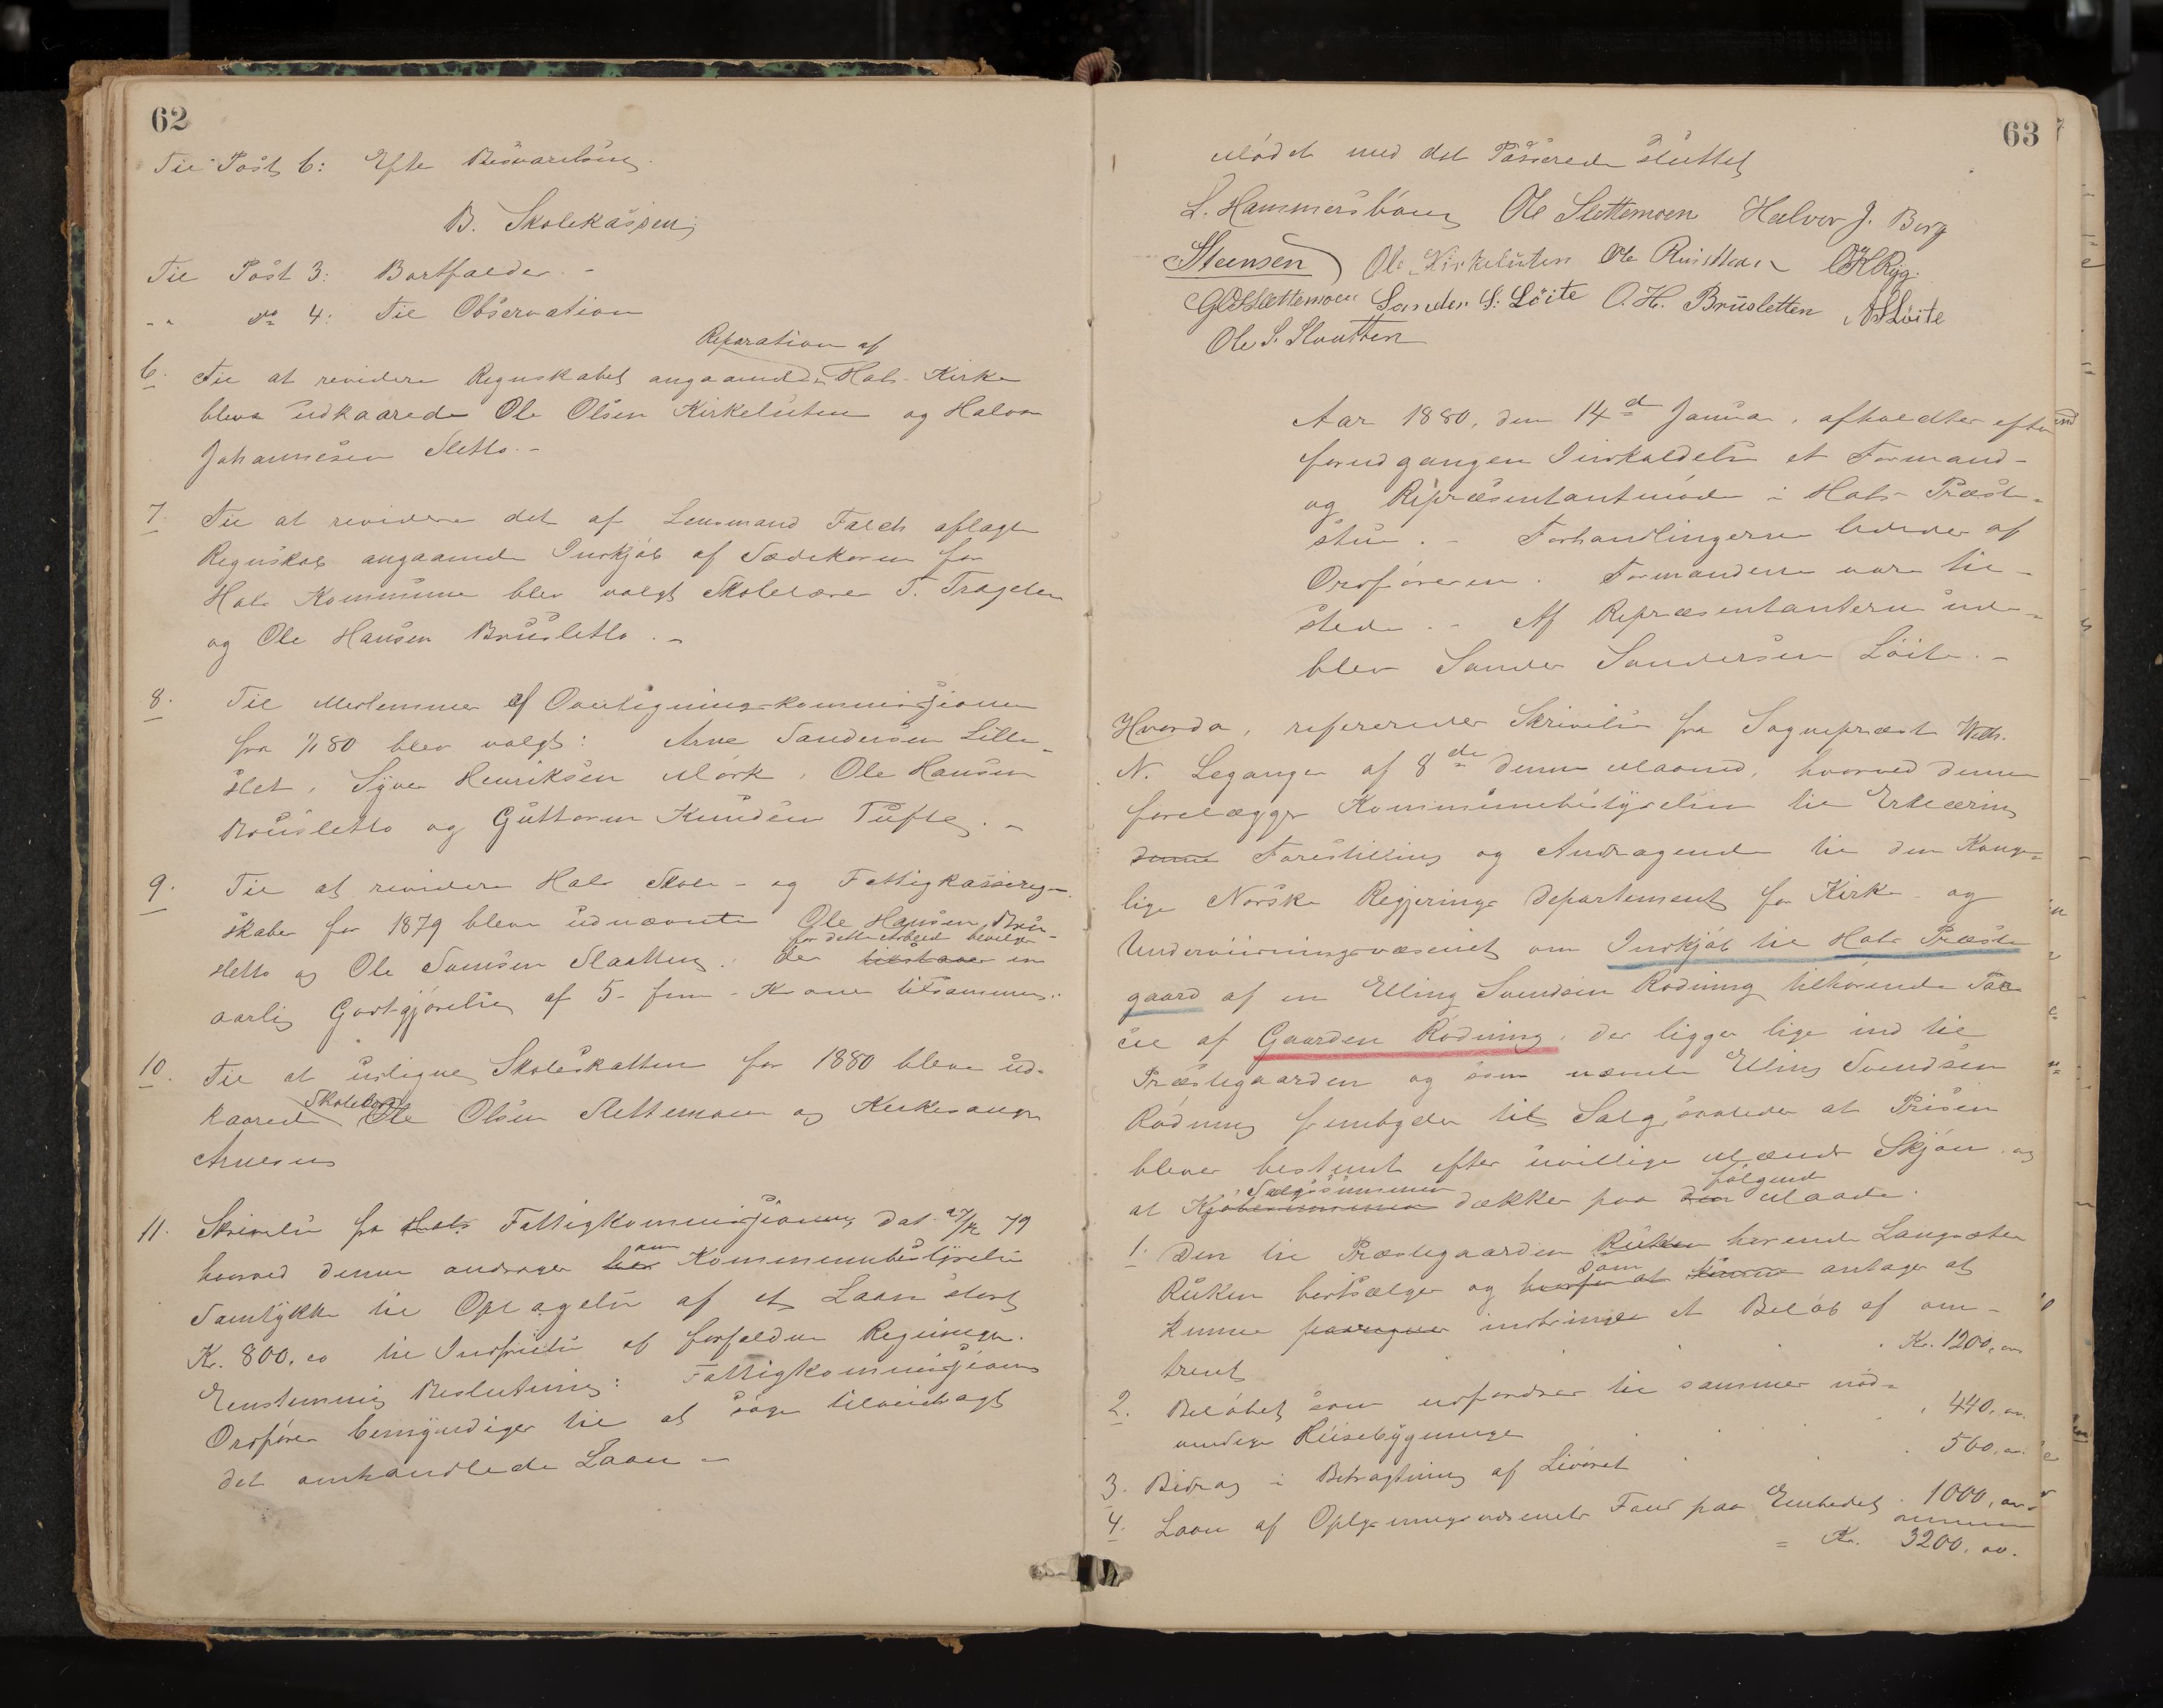 62
Til Post 6: Efter Besvarelsen.
B. Skolekassen;
Til Post 3: Bortfalder. -
- " do 4: Til Observation
Reparation af
6. Til at revidere Regnskabet angaaende Hols Kirke
bleve udkaarede Ole Olsen Kirkeluten og Halvor
Johannesen Sletto. -
7. Til at revidere det af Lensmand Falch aflagte
Regnskab angaaende Indkjøb af Sædekorn for
Hols Kommune blev valgt Skolelærer T. Trageton
og Ole Hansen Brusletto. -
8. Til Medlemmer af Overligningskommissionen
for 1/1 80 blev valgt: Arne Sandersen Lille-
slet, Syver Henriksen Mørk, Ole Hansen
Brusletto og Guttorm Knudsen Tufte. -
9. Til at revidere Hols Skole- og Fattigkasseregn-
skaber for 1879 bleve udnævnte Ole Hansen Bru-
for dette Arbeid bevilges
sletto og Ole Svensen Slaatten. der tilstaaes en
aarlig Godtgjørelse af 5- fem - Kroner tilsammen.
10. Til at udligne Skoleskatten for 1880 bleve ud-
Skolelærer
kaarede Ole Olsen Slettemoen og Kirkesanger
Arnesen
11. Skrivelse fra Hols Fattigkommission, dat. 27/12 79
om
hvorved denne andrager her Kommunebestyrelsen
Samtykke til Optagelse af et Laan stort
Kr. 800,00 til Indfrielse af forfaldne Regninger.
Enstemmig Beslutning: Fattigkommissionens
Ordfører bemyndiges til at søge tilveiebragt
det omhandlede Laan -
63
Mødet med det Passerede sluttet
L. Hammersbøen Ole Slettemoen Halvor J. Berg
Steensen Ole Kirkeluten Ole Ruistuen OKRyg.
GOSlettemoen Sander S. Löite O. H. Brusletten ASLöite
Ole S. Slaatten
Aar 1880, den 14de Januar, afholdtes efter
forudgangen Indkaldelse et Formand-
og Repræsentantmøde i Hols Præste-
stue. - Forhandlingerne lededes af
Ordføreren. Formændene vare til-
stede. - Af Repræsentanterne ude-
blev Sander Sandersen Löite. -
Hvorda, refereredes Skrivelse fra Sognepræst Wilh.
N. Leganger af 8de denne Maaned, hvorved denne
forelægger Kommunebestyrelsen til Erklæring
denne Forestilling og Andragende til den Konge-
lige Norske Regjerings Departement for Kirke- og
Underviisningsvæsenet om Indkjøb til Hols Præste
gaard af en Elling Svendsen Rødning tilhørende Par-
cel af Gaarden Rødning, der ligger lige ind til
Præstegaarden og som nævnte Elling Svendsen
Rødning frembyder til Salg, saaledes at Prisen
bliver bestemt efter uvillige Mænds Skjøn og
Salgssummen følgende
at Kjøbesummen dækkes paa den Maade.
1. Den til Præstegaarden Ruken hørende Langsæter
som
Ruken bortsælges og hvorfor at kunne antages at
kunne paaregnes indbringe et Beløb af om-
trent . . . . Kr. 1200,00
2. Beløbet som udfordres til sammes nød-
vendige Huusebygninger . . . 440,00
3. Bidrag i Betragtning af Livøret . . 560,00
4. Laan af Oplysningsvæsenets Fond paa Embedet . 1000,00
= Kr. 3200,00.